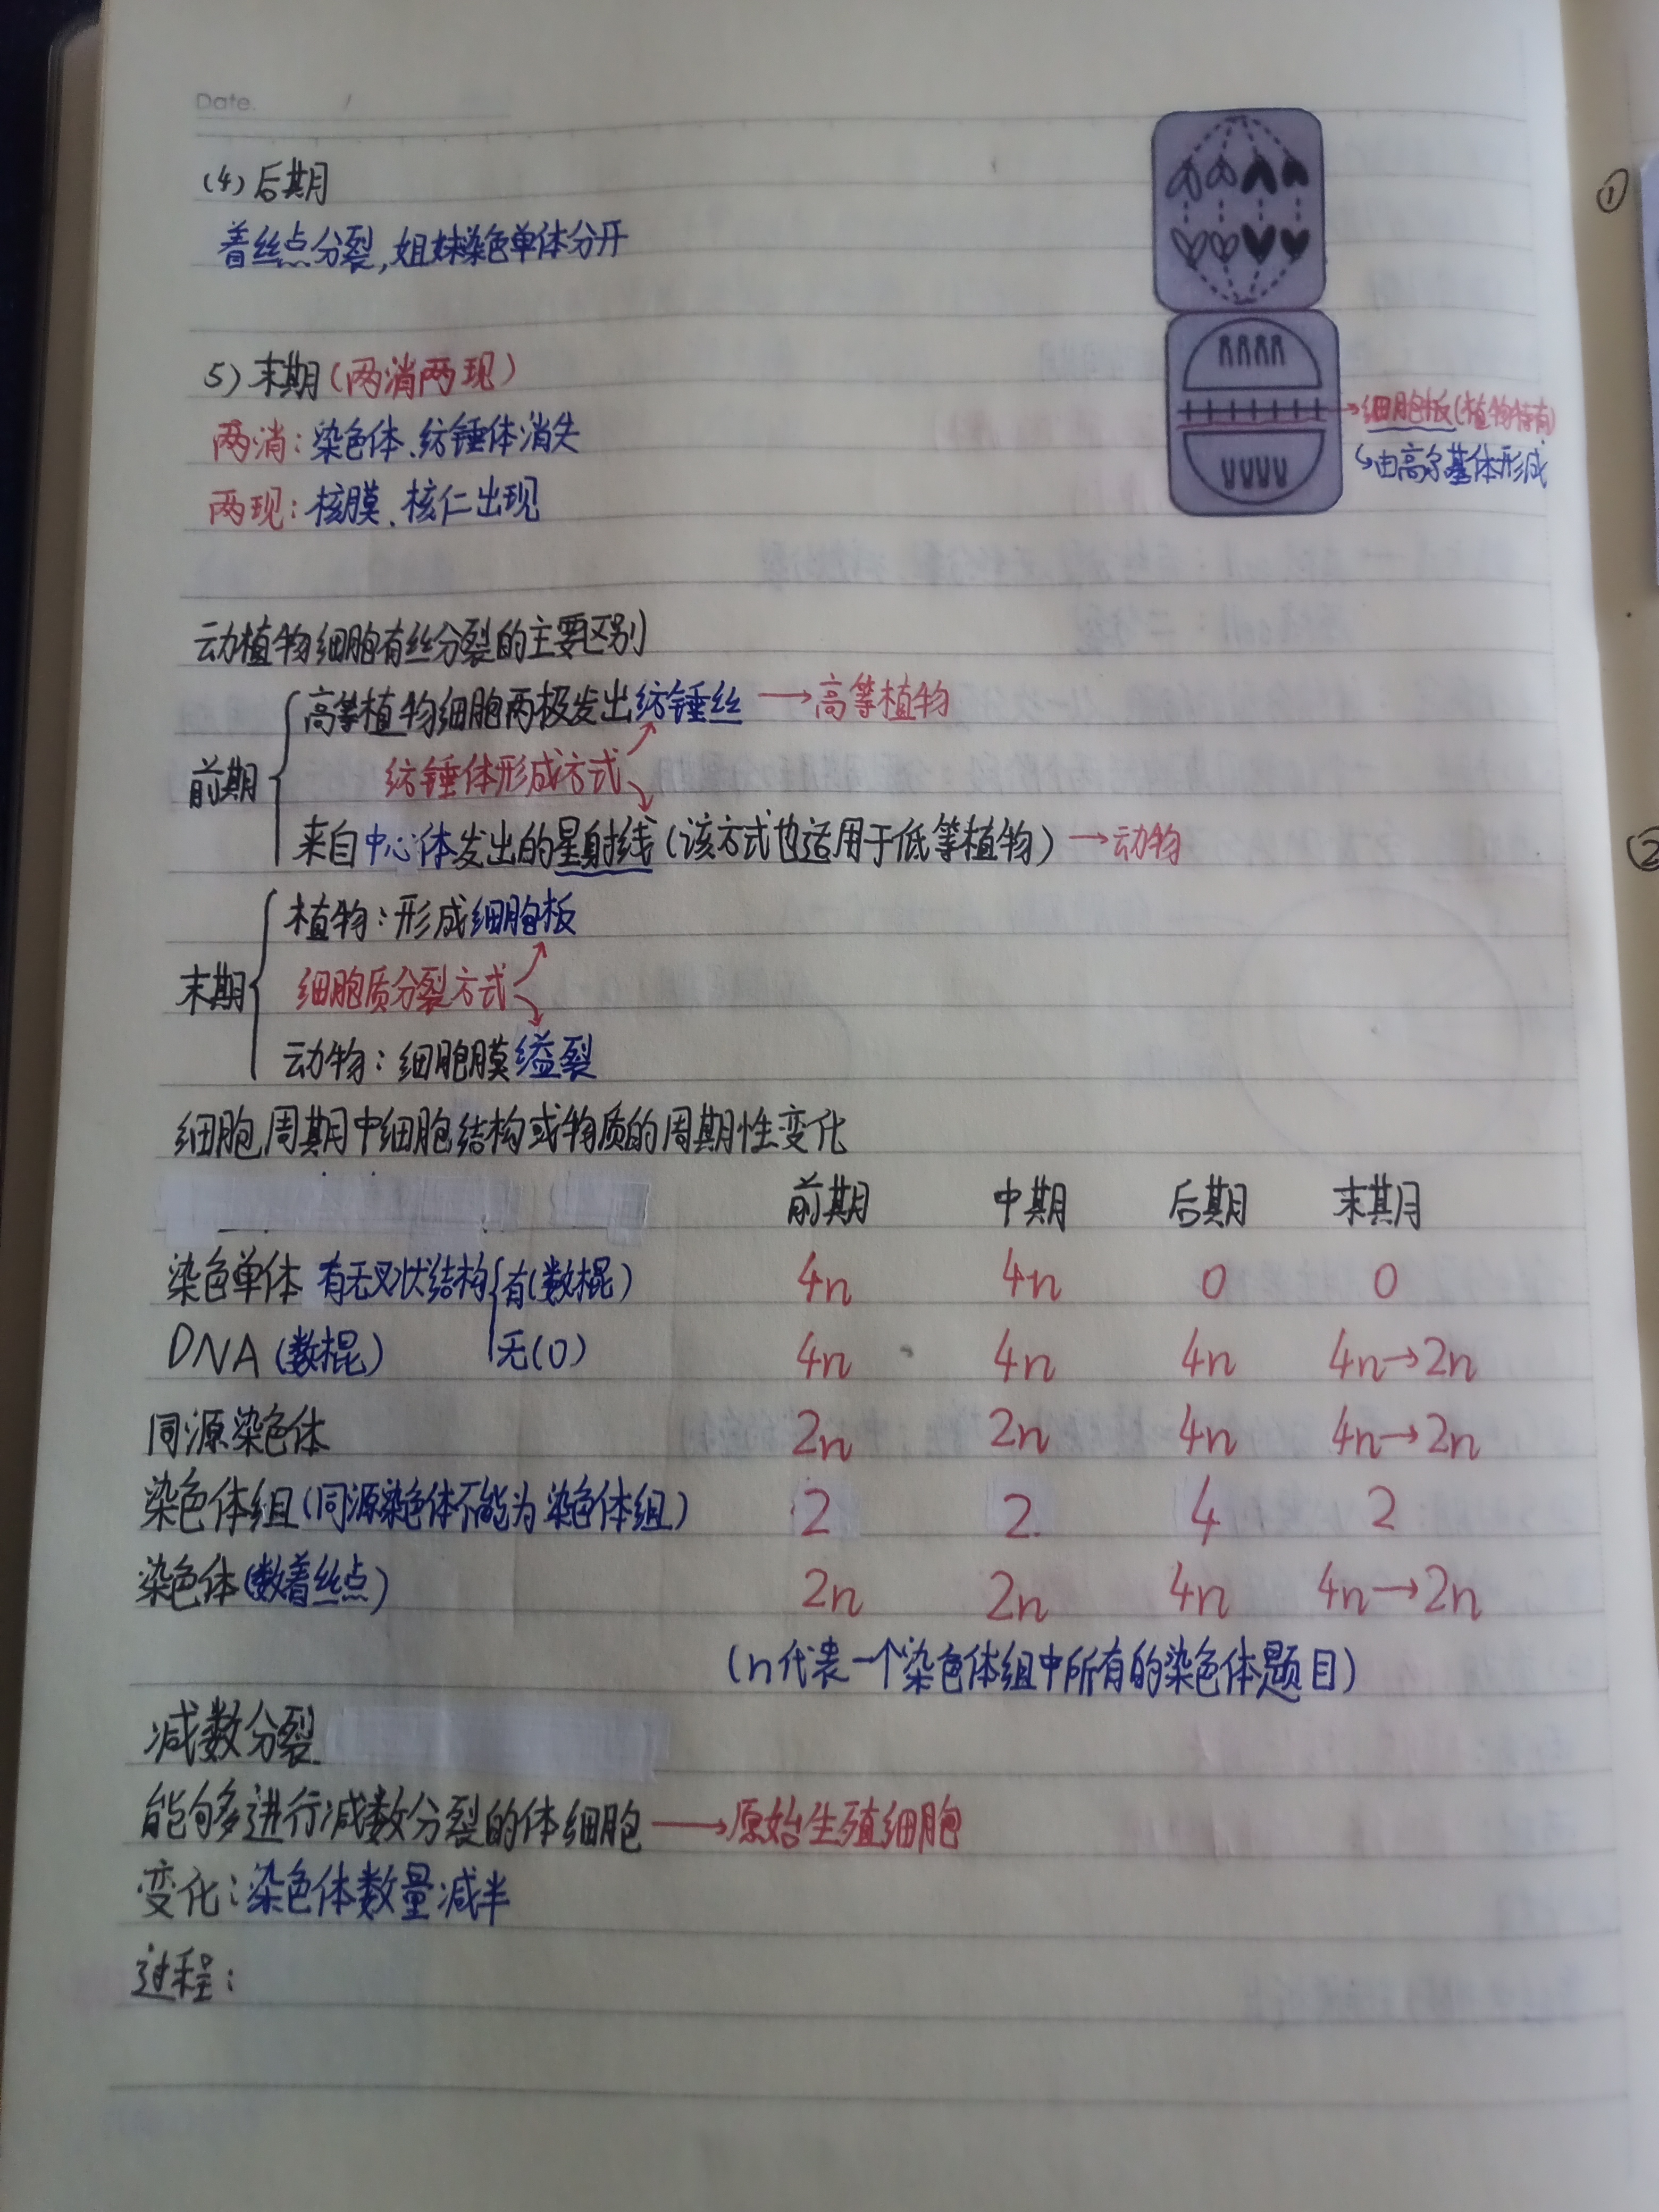 Date. /
(4) 后期
着丝点分裂,姐妹染色单体分开
5) 末期(两消两现)
两消:染色体、纺锤体消失
两现:核膜、核仁出现
→细胞板(植物特有)
↳由高尔基体形成
动植物细胞有丝分裂的主要区别
前期
高等植物细胞两极发出纺锤丝 → 高等植物
纺锤体形成方式
来自中心体发出的星射线(该方式也适用于低等植物) → 动物
末期
植物:形成细胞板
细胞质分裂方式
动物:细胞膜缢裂
细胞周期中细胞结构或物质的周期性变化
前期 中期 后期 末期
染色单体 有无叉状结构 有(数棍) 4n 4n 0 0
DNA(数棍) 无(0) 4n 4n 4n 4n→2n
同源染色体 2n 2n 4n 4n→2n
染色体组(同源染色体不能为染色体组) 2 2 4 2
染色体(数着丝点) 2n 2n 4n 4n→2n
(n代表一个染色体组中所有的染色体题目)
减数分裂
能够进行减数分裂的体细胞 → 原始生殖细胞
变化:染色体数量减半
过程:
①
②